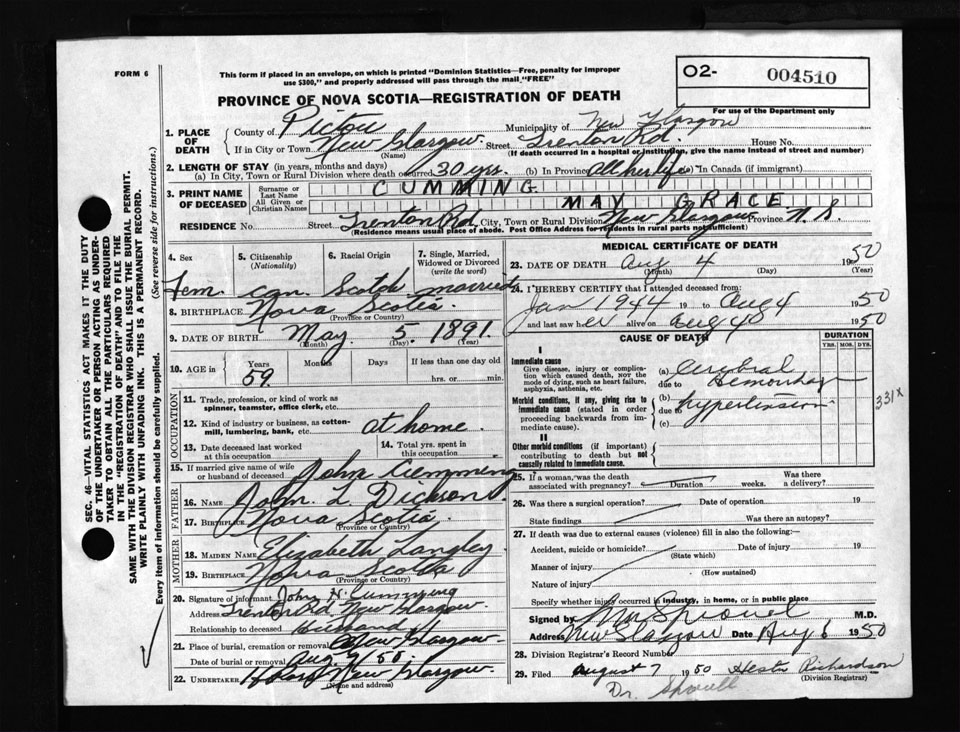 FORM 6
This form if placed in an envelope, on which is printed "Dominion Statistics—Free, penalty for improper
use $300," and properly addressed will pass through the mail "FREE"
O2- 004510
PROVINCE OF NOVA SCOTIA—REGISTRATION OF DEATH
For use of the Department only
1. PLACE OF DEATH County of Pictou Municipality of New Glasgow
If in City or Town New Glasgow Street Trenton Rd. House No.
(Name) (If death occurred in a hospital or institution, give the name instead of street and number)
2. LENGTH OF STAY (in years, months and days)
(a) In City, Town or Rural Division where death occurred 30 yrs. (b) In Province All her life (c) In Canada (if immigrant)
3. PRINT NAME OF DECEASED Surname or Last Name CUMMING
All Given or Christian Names MAY GRACE
RESIDENCE No. Street Trenton Rd City, Town or Rural Division New Glasgow Province N.S.
(Residence means usual place of abode. Post Office Address for residents in rural parts not sufficient)
4. Sex 5. Citizenship (Nationality) 6. Racial Origin 7. Single, Married, Widowed or Divorced (write the word)
Fem. Can. Scotch married
8. BIRTHPLACE Nova Scotia
(Province or Country)
9. DATE OF BIRTH May 5 1891
(Month) (Day) (Year)
10. AGE in Years Months Days If less than one day old
59 hrs. or min.
OCCUPATION
11. Trade, profession, or kind of work as
spinner, teamster, office clerk, etc.
12. Kind of industry or business, as cotton-
mill, lumbering, bank, etc. at home
13. Date deceased last worked
at this occupation
14. Total yrs. spent in
this occupation
15. If married give name of wife
or husband of deceased John Cumming
FATHER
16. NAME John L Dickson
17. BIRTHPLACE Nova Scotia
(Province or Country)
MOTHER
18. MAIDEN NAME Elizabeth Langley
19. BIRTHPLACE Nova Scotia
(Province or Country)
20. Signature of informant John H. Cumming
Address Trenton Rd New Glasgow
Relationship to deceased Husband
21. Place of burial, cremation or removal New Glasgow
Date of burial or removal Aug 7/50
22. UNDERTAKER New Glasgow
(Name and address)
MEDICAL CERTIFICATE OF DEATH
23. DATE OF DEATH Aug 4 1950
(Month) (Day) (Year)
24. I HEREBY CERTIFY that I attended deceased from:
Jan 1944 19 to Aug 4 1950
and last saw her alive on Aug 4 1950
CAUSE OF DEATH DURATION
YRS. MOS. DYS.
I
Immediate cause
Give disease, injury or complica-
tion which caused death, NOT the
mode of dying, such as heart failure,
asphyxia, asthenia, etc.
(a) Cerebral
due to Hemorrhage
Morbid conditions, if any, giving rise to
immediate cause (stated in order
proceeding backwards from im-
mediate cause).
(b) hypertension
due to
(c)
331x
II
Other morbid conditions (if important)
contributing to death but not
causally related to immediate cause.
25. If a woman, was the death
associated with pregnancy? Duration weeks. Was there
a delivery?
26. Was there a surgical operation? Date of operation 19
State findings Was there an autopsy?
27. If death was due to external causes (violence) fill in also the following:—
Accident, suicide or homicide? Date of injury 19
(State which)
Manner of injury
(How sustained)
Nature of injury
Specify whether injury occurred in industry, in home, or in public place
Signed by M.D.
Address New Glasgow Date Aug 6 1950
28. Division Registrar's Record Number
29. Filed August 7 1950 Hester Richardson
(Division Registrar)
SEC. 46—VITAL STATISTICS ACT MAKES IT THE DUTY
OF THE UNDERTAKER OR PERSON ACTING AS UNDER-
TAKER TO OBTAIN ALL THE PARTICULARS REQUIRED
IN THE "REGISTRATION OF DEATH" AND TO FILE THE
SAME WITH THE DIVISION REGISTRAR WHO SHALL ISSUE THE BURIAL PERMIT.
WRITE PLAINLY WITH UNFADING INK. THIS IS A PERMANENT RECORD.
Every item of information should be carefully supplied. (See reverse side for instructions.)